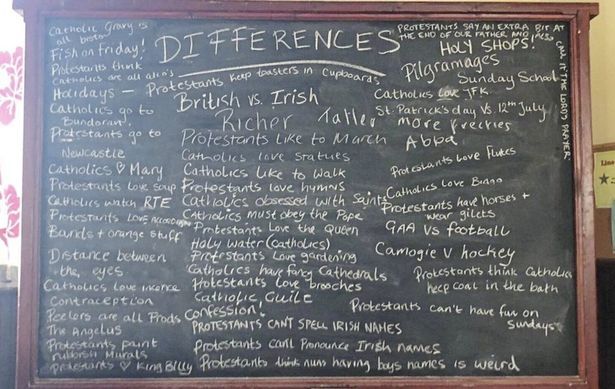 DIFFERENCES
Catholic Gravy is
all bisto
Fish on Friday!
Protestants think
Catholics are all alco's
Holidays –
Catholics go to
Bundoran!
Protestants go to
Newcastle
Catholics ♡ Mary
Protestants love soup
Catholics watch RTE
Protestants Love
Bands + orange stuff
Distance between
the eyes
Catholics Love incence
Contraception
Peelers are all Prods
The Angelus
Protestants paint
rubbish Murals
Protestants ♡ King Billy
Protestants keep toasters in cupboards
British vs. Irish
Richer
Taller
Protestants Like to March
Catholics love statues
Catholics Like to Walk
Protestants love hymns
Catholics obsessed with Saints
Catholics must obey the Pope
Protestants Love the Queen
Holy Water (Catholics)
Protestants Love gardening
Catholics have fancy Cathedrals
Protestants Love brooches
Catholic Guilt
Confession!
PROTESTANTS CANT SPELL IRISH NAMES
Protestants can't Pronounce Irish names
Protestants think nuns having boys names is weird
PROTESTANTS SAY AN EXTRA BIT AT
THE END OF OUR FATHER AND ALSO
CALL IT THE LORDS PRAYER
HOLY SHOPS!
Pilgramages
Sunday School
Catholics Love JFK
St. Patrick's day Vs. 12th July
More Freckles
Abba
Protestants Love Flutes
Catholics Love Bingo
Protestants have horses +
wear gilets
GAA VS football
Camogie V hockey
Protestants think Catholics
keep coal in the bath
Protestants can't have fun on
Sundays